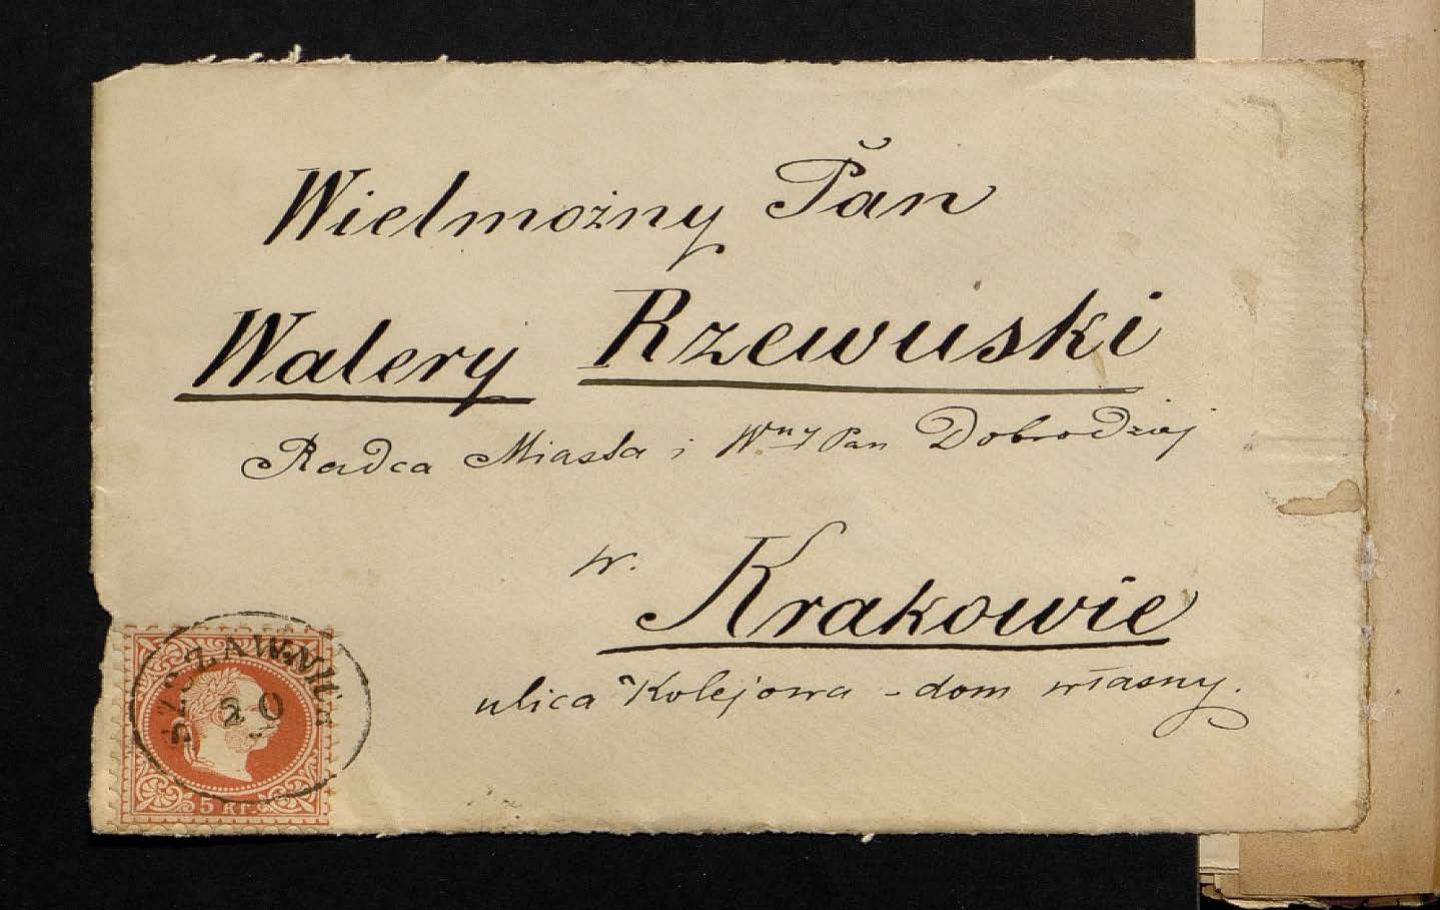 Wielmożny Pan
Walery Rzewuski
Radca Miasta i Wny Pan Dobrodziej
w.
Krakowie
ulica Kolejowa - dom własny.
SZCZAWNICA
20
5 kr.